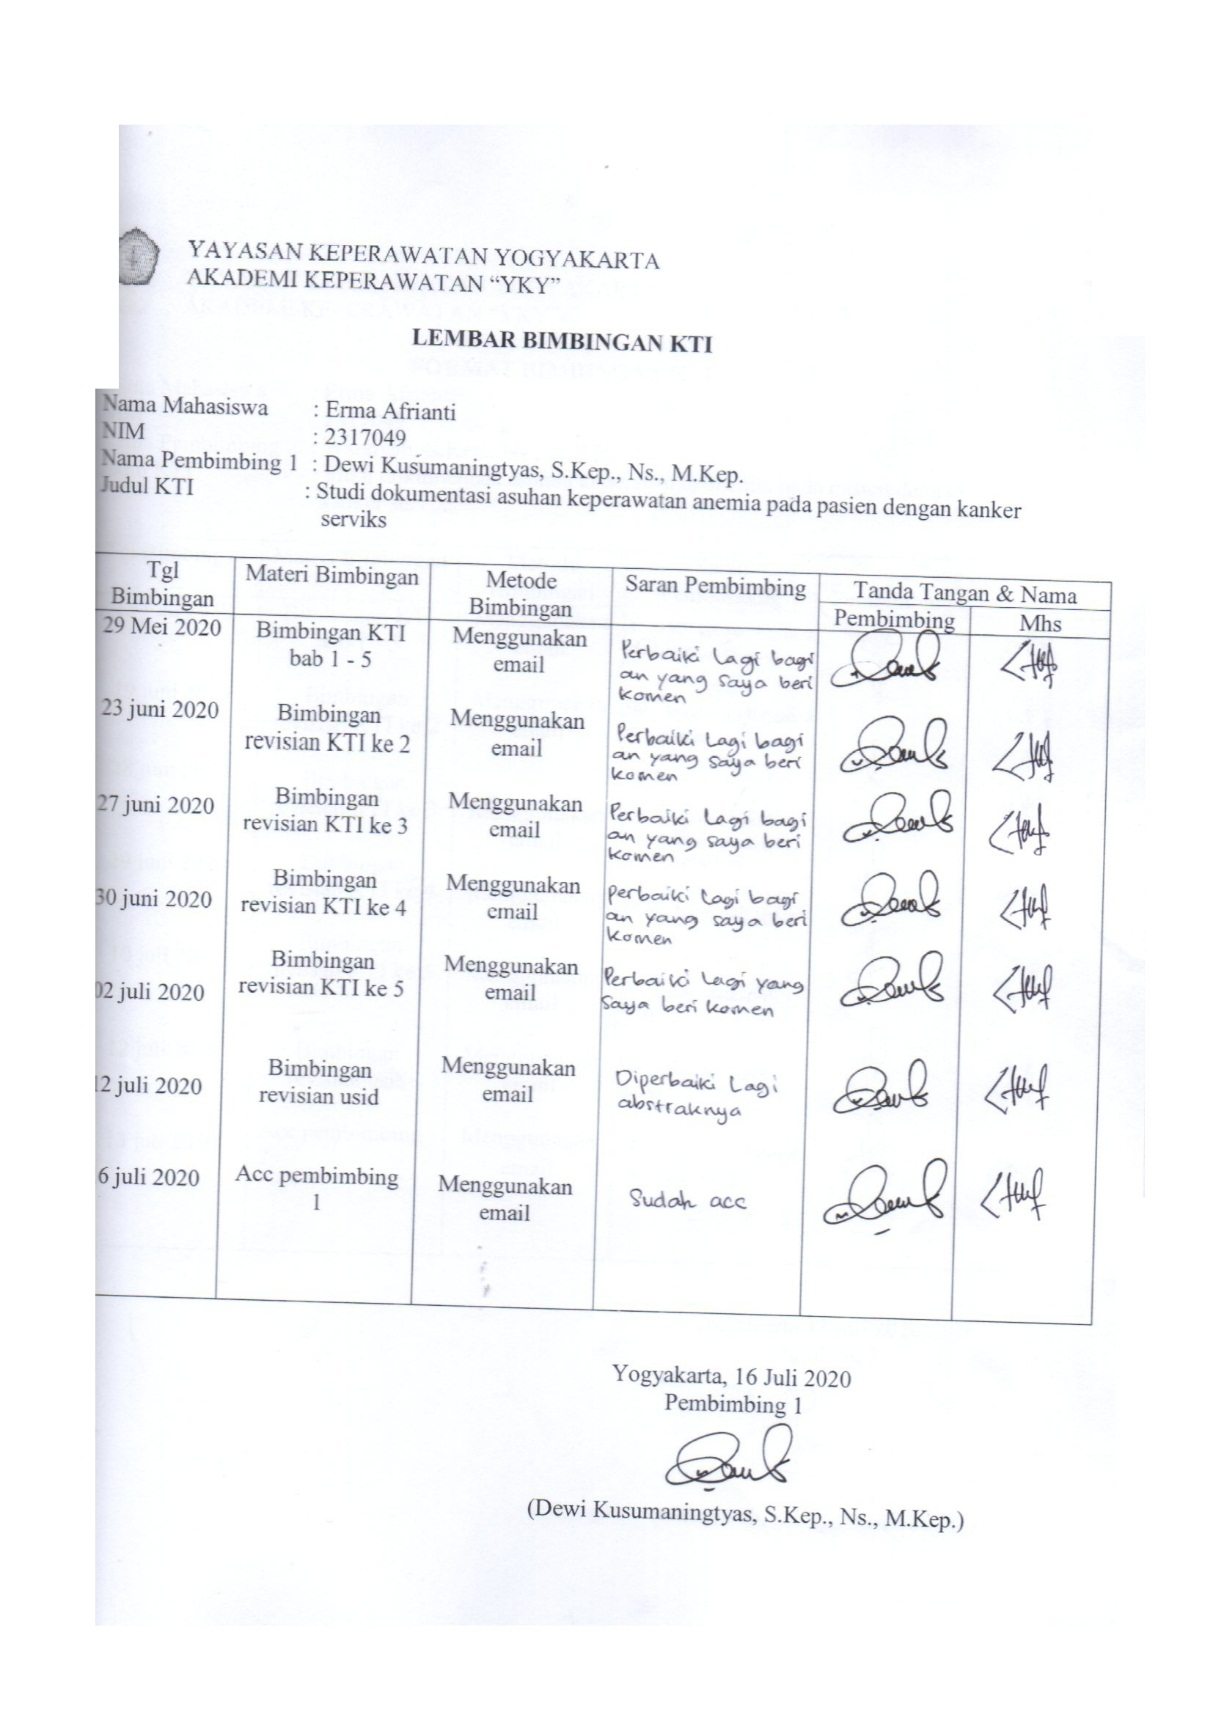 YAYASAN KEPERAWATAN YOGYAKARTA
AKADEMI KEPERAWATAN “YKY”
LEMBAR BIMBINGAN KTI
Nama Mahasiswa : Erma Afrianti
NIM : 2317049
Nama Pembimbing 1 : Dewi Kusumaningtyas, S.Kep., Ns., M.Kep.
Judul KTI : Studi dokumentasi asuhan keperawatan anemia pada pasien dengan kanker
serviks
Tgl
Bimbingan
Materi Bimbingan
Metode
Bimbingan
Saran Pembimbing
Tanda Tangan & Nama
Pembimbing
Mhs
29 Mei 2020
Bimbingan KTI
bab 1 - 5
Menggunakan
email
Perbaiki Lagi bagi
an yang saya beri
komen
23 juni 2020
Bimbingan
revisian KTI ke 2
Menggunakan
email
Perbaiki Lagi bagi
an yang saya beri
komen
27 juni 2020
Bimbingan
revisian KTI ke 3
Menggunakan
email
Perbaiki Lagi bagi
an yang saya beri
komen
30 juni 2020
Bimbingan
revisian KTI ke 4
Menggunakan
email
perbaiki Lagi bagi
an yang saya beri
komen
02 juli 2020
Bimbingan
revisian KTI ke 5
Menggunakan
email
Perbaiki Lagi yang
saya beri komen
12 juli 2020
Bimbingan
revisian usid
Menggunakan
email
Diperbaiki Lagi
abstraknya
6 juli 2020
Acc pembimbing
1
Menggunakan
email
Sudah acc
Yogyakarta, 16 Juli 2020
Pembimbing 1
(Dewi Kusumaningtyas, S.Kep., Ns., M.Kep.)